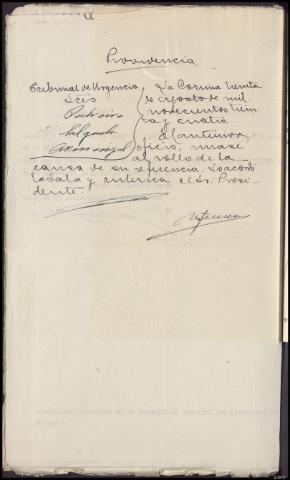 Providencia
Tribunal de Urgencia
Stes
Pedreira
Salgado
La Coruña treinta
de agosto de mil
novecientos trein
ta y cuatro.
Al anterior
oficio, unase
al rollo de la
causa de su referencia. Lo acordó
la Sala y rubrica el Sr. Presi-
dente.